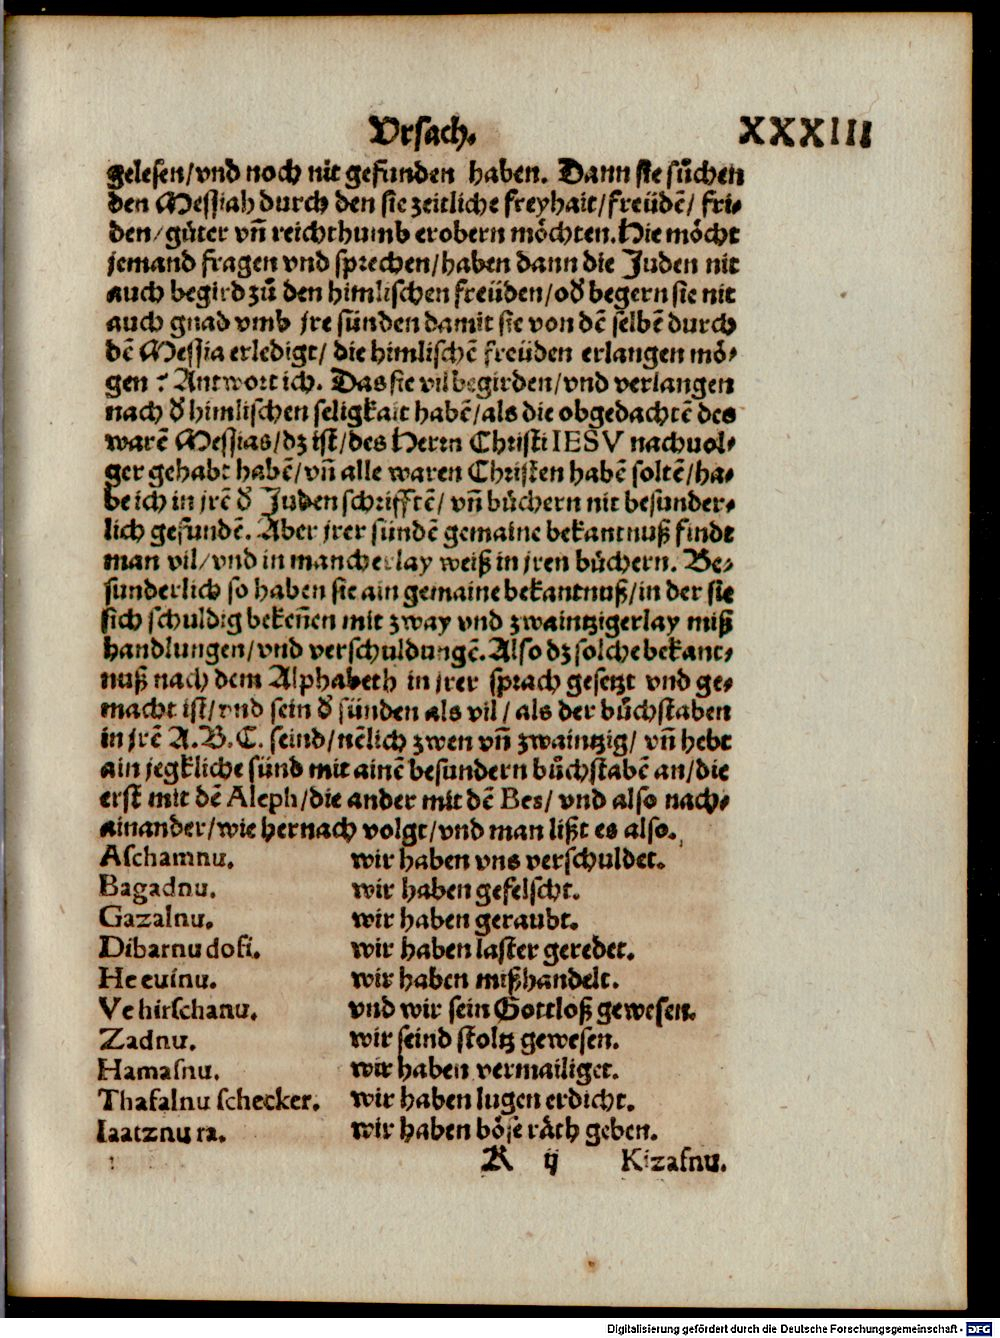 Vrsach. XXXIII
gelesen/vnd noch nit gefunden haben. Dann sie sůchen
den Messiah durch den sie zeitliche freyhait/freüdē/ fri⸗
den/gůter vn̄ reichthumb erobern möchten. Hie möcht
jemand fragen vnd sprechen/haben dann die Juden nit
auch begird zů den himlischen freüden/od̄ begern sie nit
auch gnad vmb jre sünden damit sie von dē selbē durch
dē Messia erledigt/ die himlischē freüden erlangen mö⸗
gen? Antwort ich. Das sie vil begirden/vnd verlangen
nach d̄ himlischen seligkait habē/als die obgedachtē des
warē Messias/dz ist/des Herrn Christi IESV nachuol⸗
ger gehabt habē/vn̄ alle waren Christen habē soltē/ha⸗
be ich in jrē d̄ Juden schrifftē/ vn̄ bůchern nit besunder⸗
lich gefundē. Aber jrer sündē gemaine bekantnuß findt
man vil/vnd in mancherlay weiß in jren bůchern. Be⸗
sunderlich so haben sie ain gemaine bekantnuß/in der sie
sich schuldig bekeñen mit zway vnd zwaintzigerlay miß
handlungen/vnd verschuldungē. Also dz solche bekant⸗
nuß nach dem Alphabeth in jrer sprach gesetzt vnd ge⸗
macht ist/vnd sein d̄ sünden als vil/ als der bůchstaben
in jrē A.B.C. seind/nēlich zwen vn̄ zwaintzig/ vn̄ hebt
ain jegkliche sünd mit ainē besundern bůchstabē an/die
erst mit dē Aleph/die ander mit dē Bes/ vnd also nach⸗
ainander/wie hernach volgt/vnd man lißt es also.
Aschamnu. wir haben vns verschuldet.
Bagadnu. wir haben gefelscht.
Gazalnu. wir haben geraubt.
Dibarnu dofi. wir haben laster geredet.
He euinu. wir haben mißhandelt.
Ve hirschanu. vnd wir sein Gottloß gewesen.
Zadnu. wir seind stoltz gewesen.
Hamasnu. wir haben vermailiget.
Thafalnu schecker. wir haben lugen erdicht.
Iaatznu ra. wir haben böse räth geben.
K ij Kizafnu.
Digitalisierung gefördert durch die Deutsche Forschungsgemeinschaft - DFG